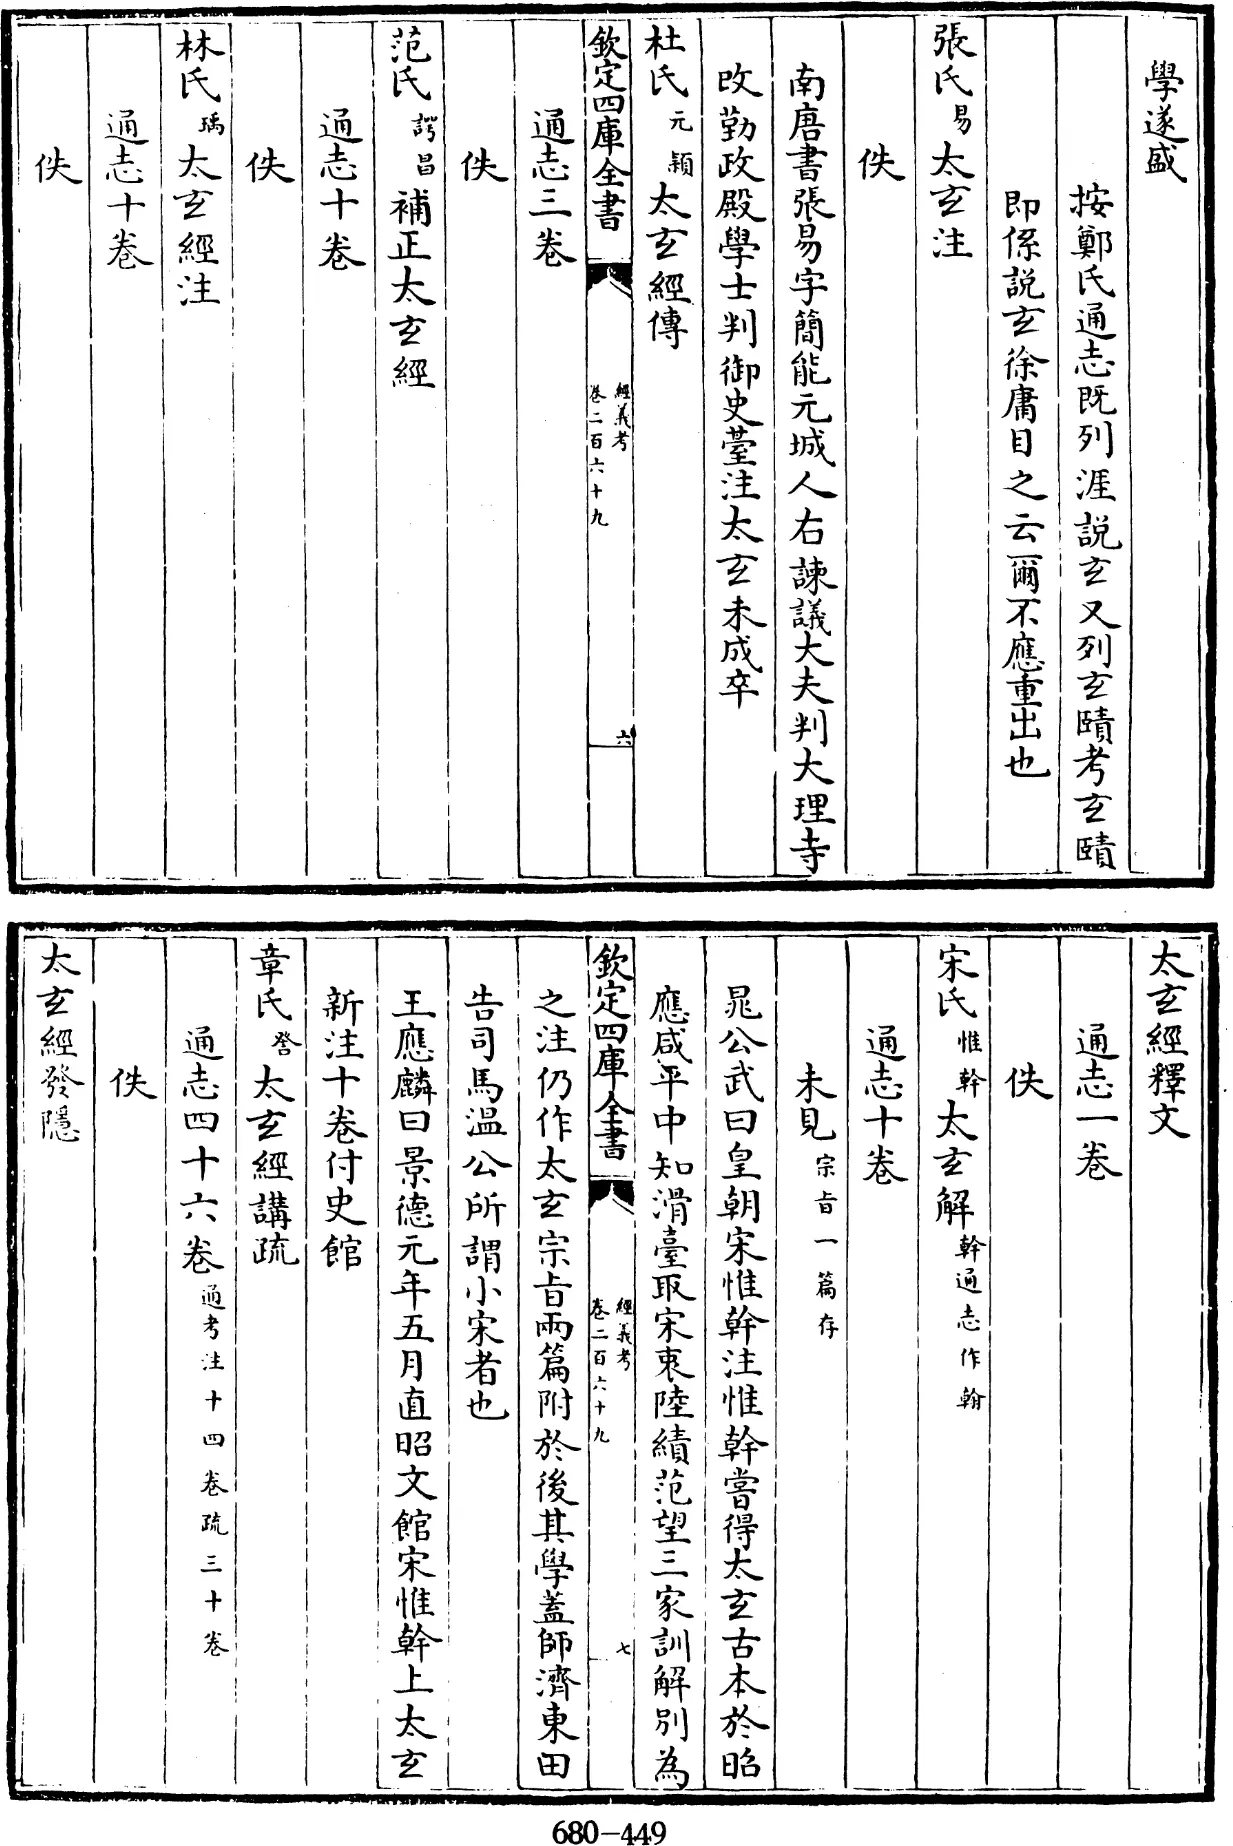 學遂盛
按鄭氏通志既列涯説玄又列玄賾考玄賾
即係説玄徐庸目之云爾不應重出也
張氏易太玄注
佚
南唐書張易字簡能元城人右諫議大夫判大理寺
改勤政殿學士判御史䑓注太玄未成卒
杜氏元穎太玄經傳
欽定四庫全書
經義考
卷二百六十九
六
通志三卷
佚
范氏諤昌補正太玄經
通志十卷
佚
林氏瑀太玄經注
通志十卷
佚
太玄經釋文
通志一卷
佚
宋氏惟幹太玄解幹通志作翰
通志十卷
未見宗旨一篇存
晁公武曰皇朝宋惟幹注惟幹嘗得太玄古本於昭
應咸平中知滑臺取宋衷陸績范望三家訓解別為
欽定四庫全書
經義考
卷二百六十九
七
之注仍作太玄宗旨兩篇附於後其學蓋師濟東田
告司馬溫公所謂小宋者也
王應麟曰景德元年五月直昭文館宋惟幹上太玄
新注十卷付史館
章氏詧太玄經講疏
通志四十六卷通考注十四卷疏三十卷
佚
太玄經發隱
680-449